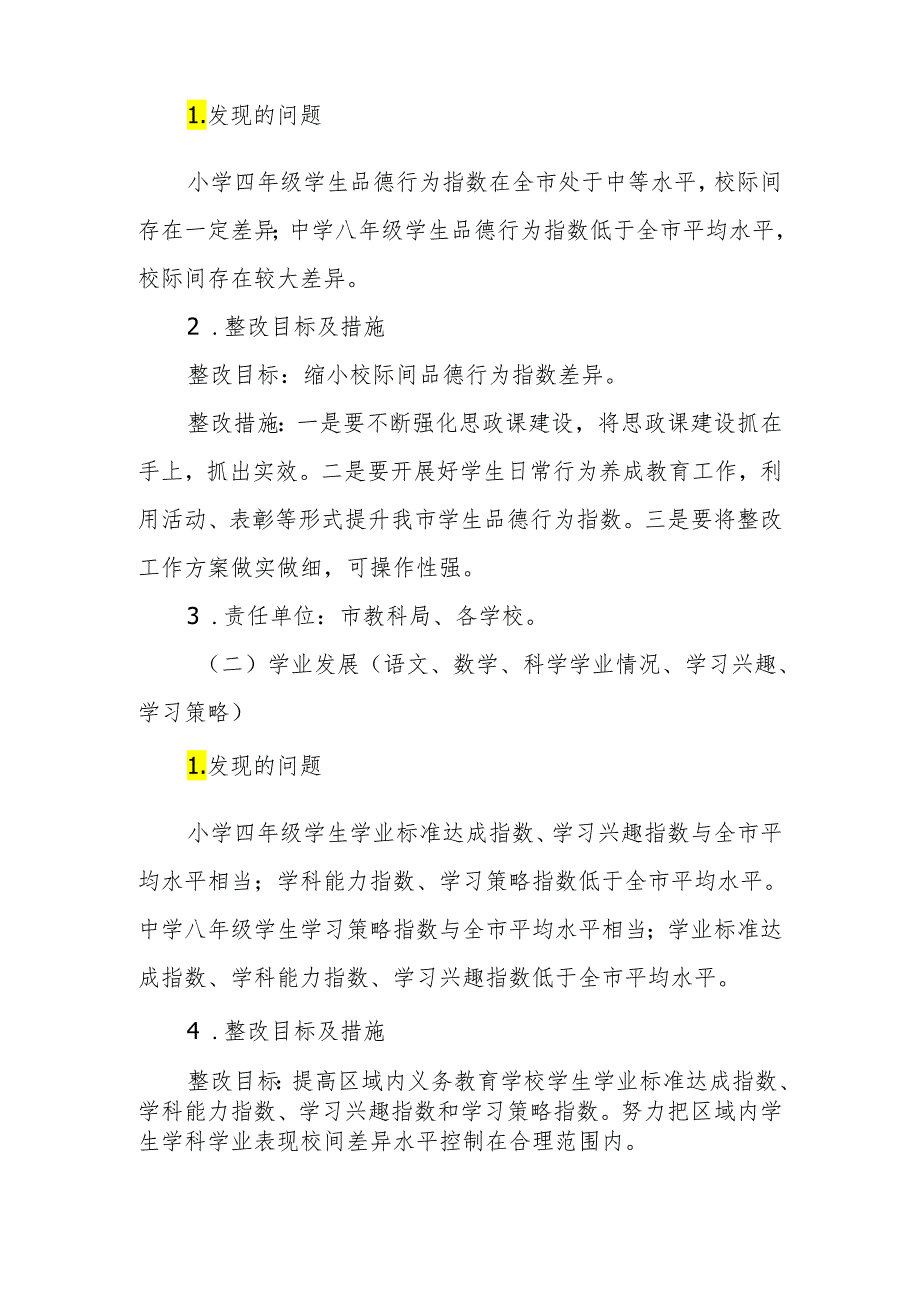 1.发现的问题
小学四年级学生品德行为指数在全市处于中等水平，校际间
存在一定差异；中学八年级学生品德行为指数低于全市平均水平，
校际间存在较大差异。
2 . 整改目标及措施
整改目标：缩小校际间品德行为指数差异。
整改措施：一是要不断强化思政课建设，将思政课建设抓在
手上，抓出实效。二是要开展好学生日常行为养成教育工作，利
用活动、表彰等形式提升我市学生品德行为指数。三是要将整改
工作方案做实做细，可操作性强。
3 . 责任单位：市教科局、各学校。
（二）学业发展（语文、数学、科学学业情况、学习兴趣、
学习策略）
1.发现的问题
小学四年级学生学业标准达成指数、学习兴趣指数与全市平
均水平相当；学科能力指数、学习策略指数低于全市平均水平。
中学八年级学生学习策略指数与全市平均水平相当；学业标准达
成指数、学科能力指数、学习兴趣指数低于全市平均水平。
4 . 整改目标及措施
整改目标：提高区域内义务教育学校学生学业标准达成指数、
学科能力指数、学习兴趣指数和学习策略指数。努力把区域内学
生学科学业表现校间差异水平控制在合理范围内。